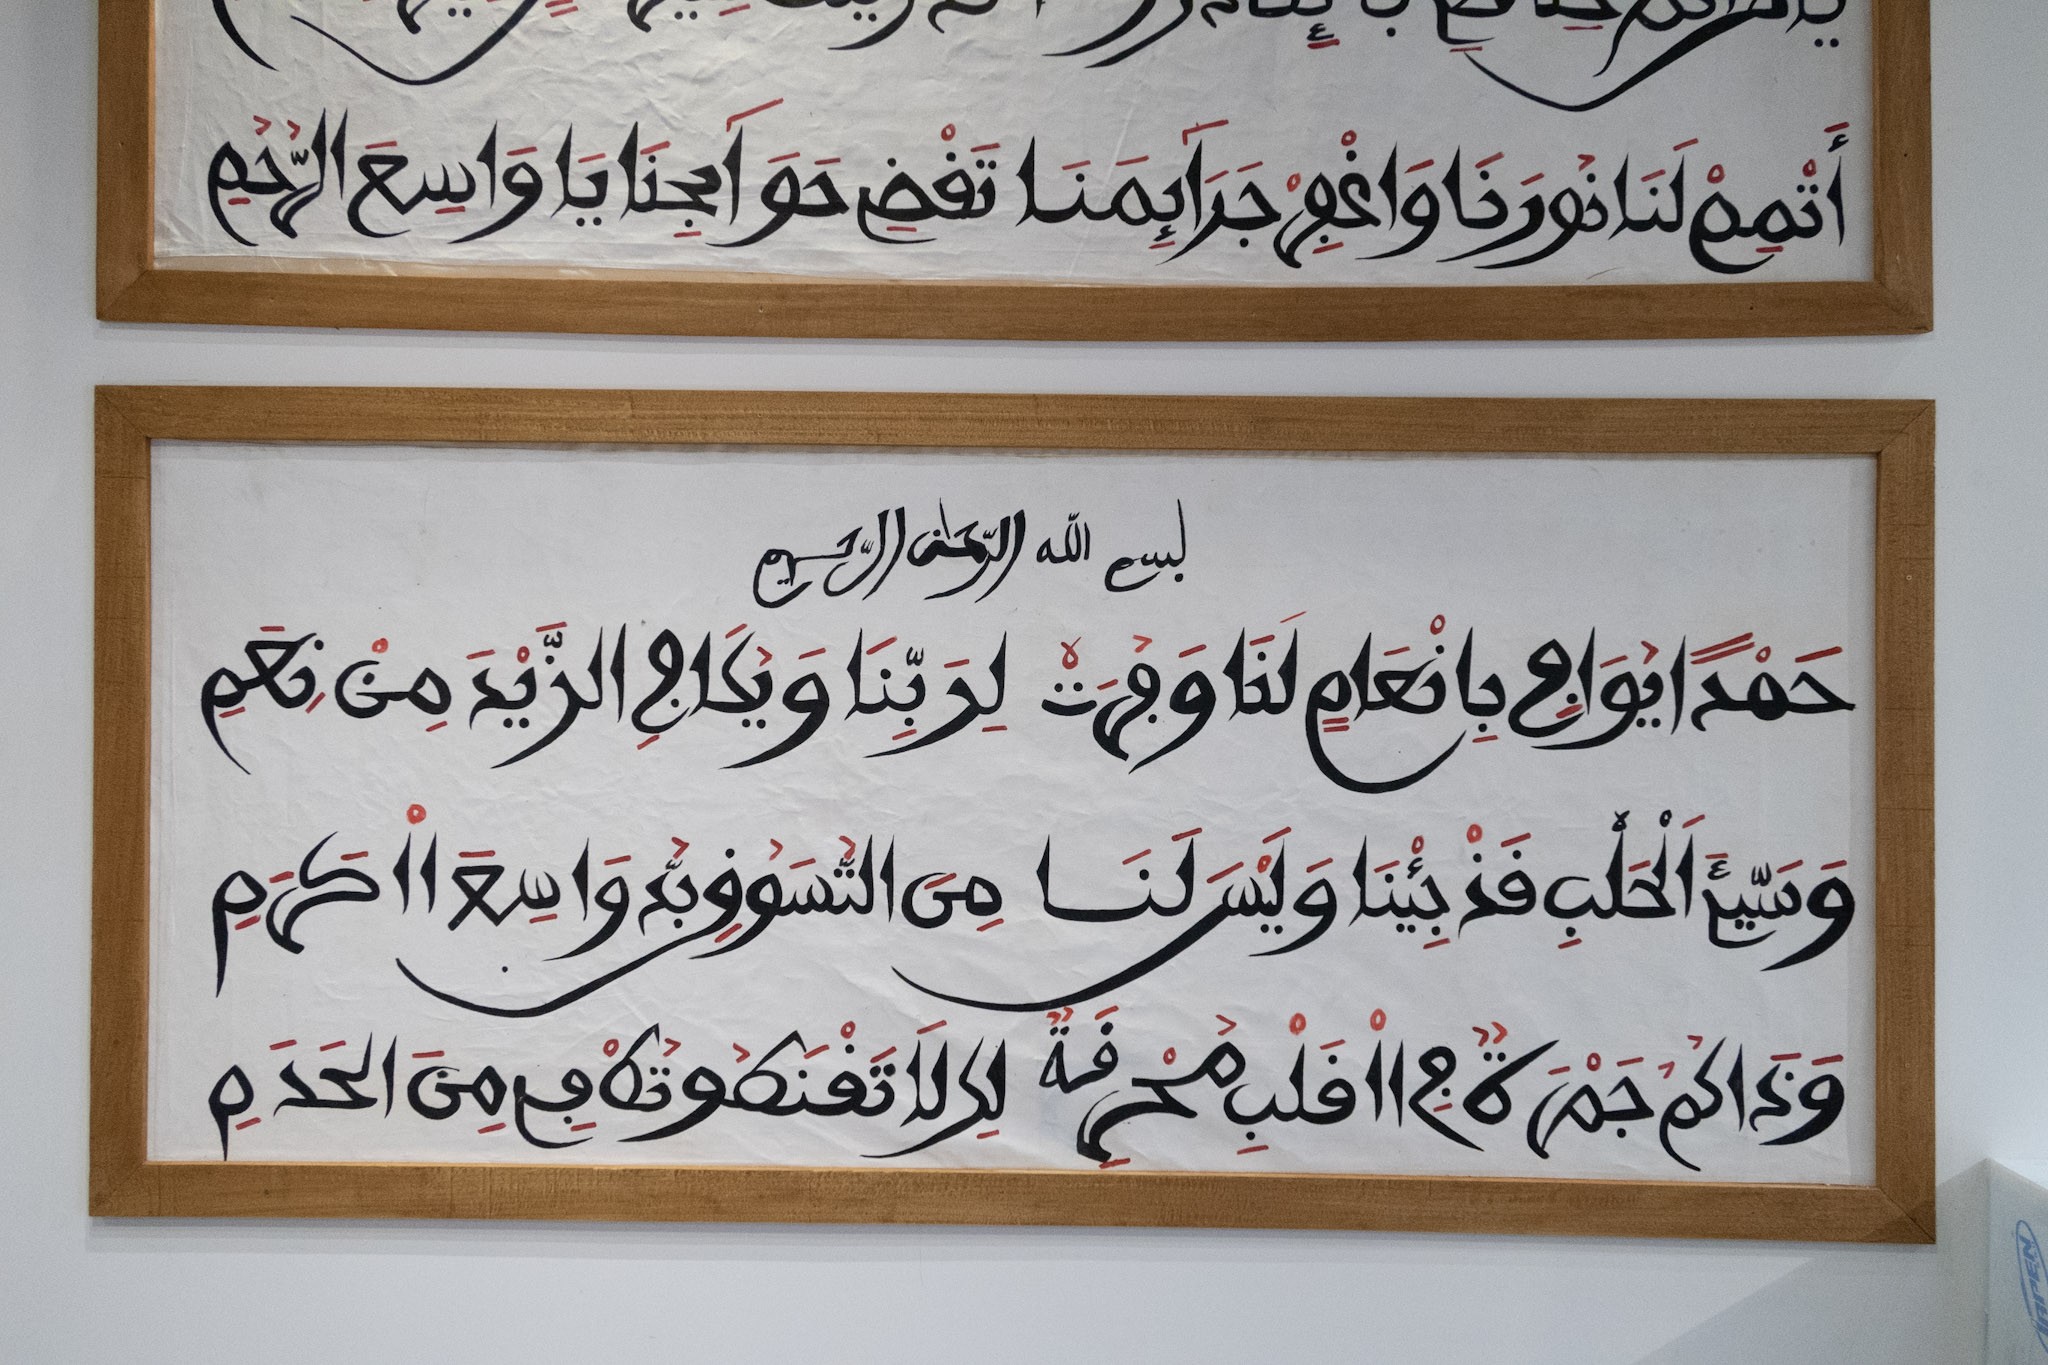 أَتْمِمْ لَنَا نُورَنَا وَاغْفِرْ جَرَائِمَنَا تَقْضِ حَوَائِجَنَا يَا وَاسِعَ الرُّحُمِ
بسم الله الرحمان الرحيم
حَمْدًا يُوَافِي بِإِنْعَامٍ لَنَا وَفُرَتْ لِرَبِّنَا وَيُكَافِي الزَّيْدَ مِنْ نِعَمِ
وَسَيِّئَ الْحَلْبِ قَدْ جِئْنَا وَلَيْسَ لَنَا مِنَ التَّسَوُّقِ بُدٌّ وَاسِعَ الْكَرَمِ
وَذَاكُمُ جَمْرَةٌ فِي الْقَلْبِ مُحْرِقَةٌ مِنَ الحَدَمِ